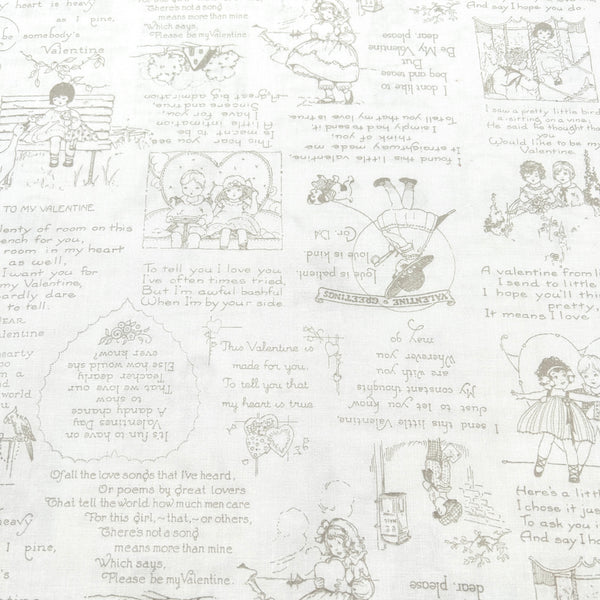 heart is heavy
as I pine,
be somebody's
Valentine
There's not a song
means more than mine
Which says,
Please be my Valentine.
I don't like to
beg and tease
But
Be My Valentine
dear, please
And say I hope you do.
This hour you see
Is meant to be
A little intimation
I have for you,
Sincere and true,
A great big admiration
I found this little valentine,
It straightway made me
think of you!
I simply had to send it
To tell you that my love is true
I saw a pretty little bird
a sitting on a vine
He said he thought
Would like to be my
Valentine.
TO MY VALENTINE
plenty of room on this
bench for you,
room in my heart
as well,
I want you for
my Valentine,
hardly dare
to tell.
To tell you I love you
I've often times tried,
But I'm awful bashful
When I'm by your side
Love is patient,
love is kind.
Cor. 13:4
VALENTINE GREETINGS
A valentine from
I send to little
I hope you'll
pretty,
It means I love
DEAR
Valentine
hearty
It's fun to have on
Valentines Day
A dandy chance
to show
That we love our
Teacher dearly
Else how would she
ever know?
This Valentine is
made for you.
To tell you that
my heart is true
I send this little Valentine,
Just to let you know
My constant thoughts
are with you
Wherever you
may go
Of all the love songs that I've heard,
Or poems by great lovers
That tell the world how much men care
For this girl, ~that, ~ or others,
There's not a song
means more than mine
Which says,
Please be my Valentine.
is heavy
I pine,
Valentine
Here's a little
I chose it just
To ask you
And say I hope
dear, please